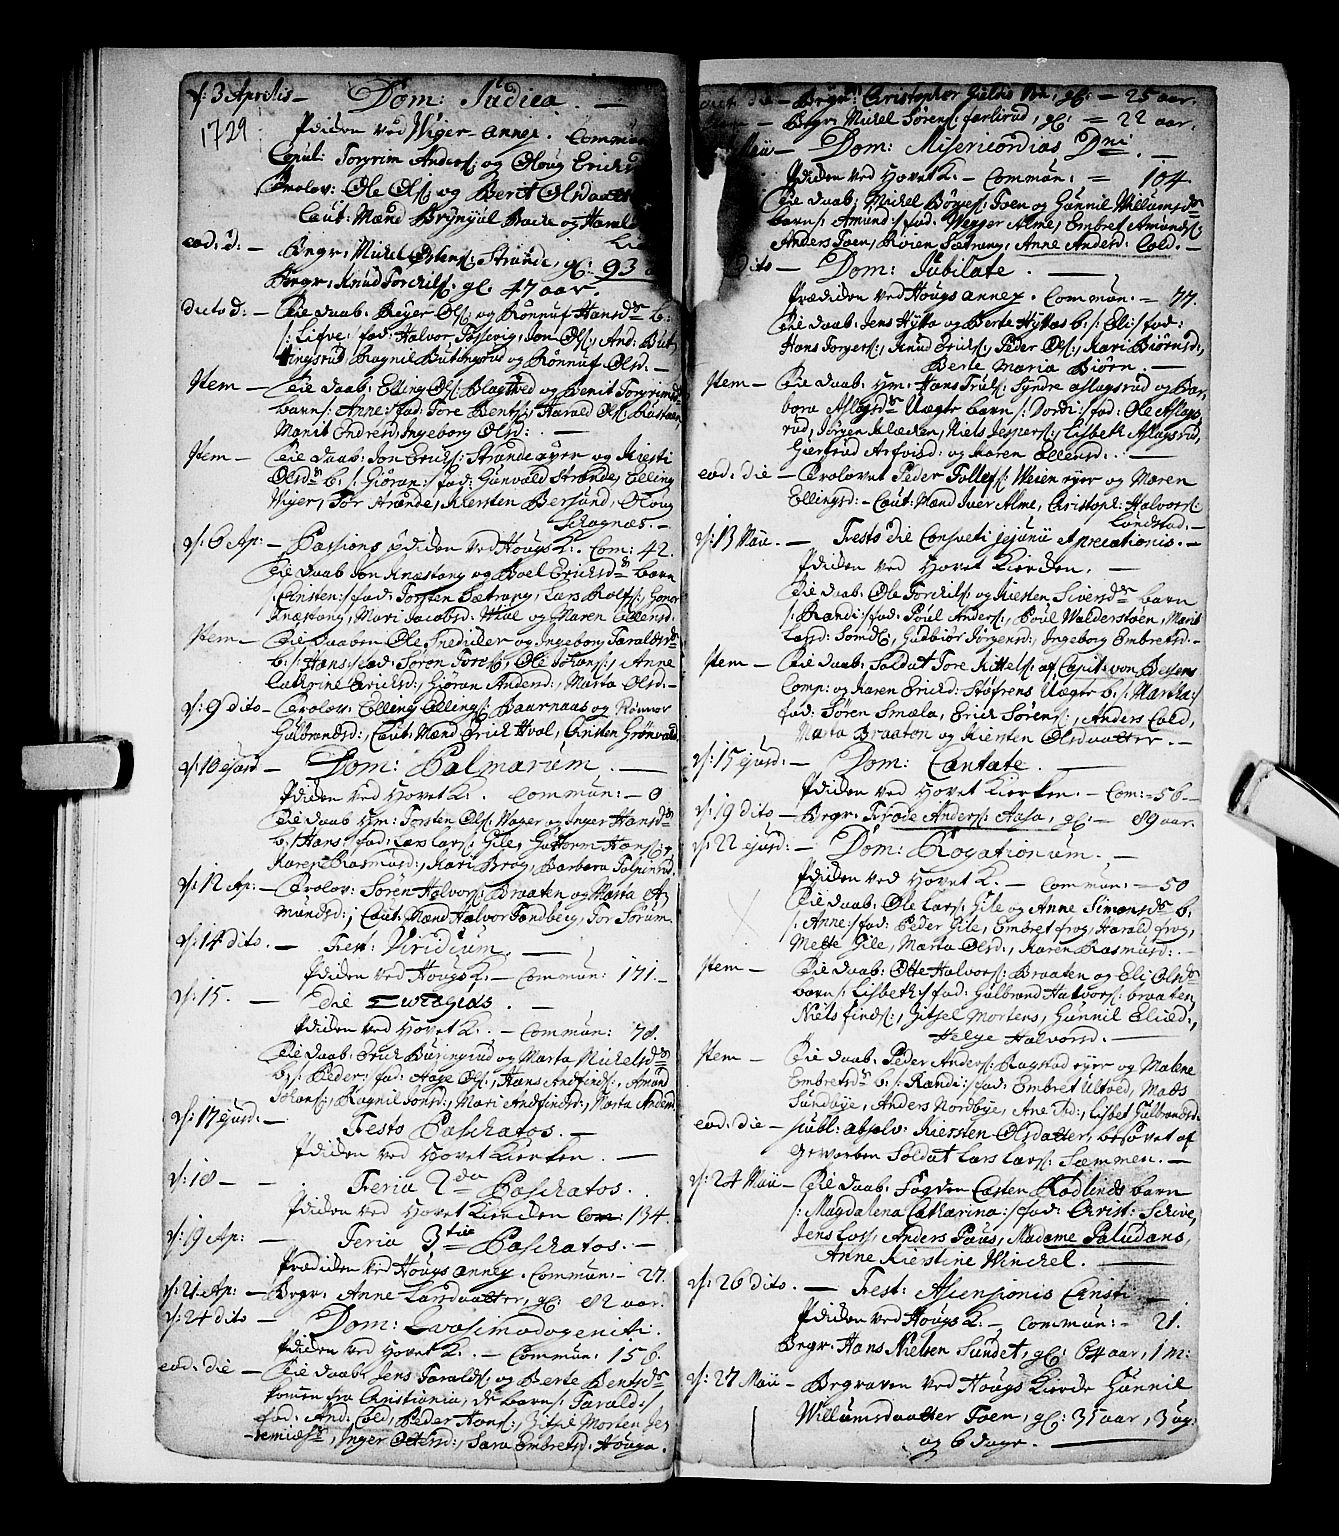 d: 3 Aprilis – Dom: Judica. –
1729
Prædiken ved Wiger annex. Commun
Copul: Torgrim Anders: og Oloug Ericks
Trolov: Ole Ols: og Berit Olsdaatter
Caut: Mænd Brynjul Bracke og Harald
eod: d: – Begr: Mickel Østens: Strande, gl: 93
Begr: Knud Torckils: gl: 47 aar.
dicto d: – Eie daab: Reyer Ols: og Rønnuf Hansdr b:
/: Lisve: fad: Halvor Fosservig, Jon Ols:, And: But,
tingsrud Ragnil Butingsrud og Rønnuf Olsd: –
Item – Eie daab: Elling Ols: Blagtved og Berit Torgrimsdr
barn /: Anne: fad: Tore Bents: Harald Ols: Rustaden,
Marit Endresd, Ingeborg Olsd: –
Item – Eie daab: Jon Ericks: Strande eyer og Kiersti
Olsdr b: /: Giøran: fad: Gunvald Strande, Elling
Wiger, Tor Strande, Kiersten Bersund, Oloug
Skognæs. –
d: 6 Ap: – Passions prediken ved Hougs K. Com: 42.
Eie daab Jon Knæstang og Boel Ericksdr barn
/: Cristen: fad: Torsten Sætrang, Lars Rolfs:, Gunor
Knæstang, Mari Jacobsd: Hval og Maren Ellensd: –
Item – Eie daaben Ole Snediker og Ingeborg Taraldsdr
b: /: Hans: fad: Soren Tores:, Ole Johans:, Anne
Cathrine Ericksd:, Giøran Andersd:, Marta Olsd: –
d: 9 dito – Trolov: Elling Ellings: Baarnaas og Rønnor
Gulbrandsd:, Caut: Mænd Erick Hval, Cristen Grønvold
d: 10 ejusd – Dom: Palmarum. –
Prdiken ved Hovet K. Commun: – 0
Eie daab Hm: Torsten Ols: Wager og Inger Hansdr
b: /: Hans: fad: Lars Lars: Gile, Guttorm Hans:,
Karen Rasmusd:, Kari Brog, Barbara Tolpinrud.
d: 12 Ap: – Trolov: Sören Halvors: Braaten og Marta A
mundsd:, Caut: Mænd Halvor Tandberg, Tor Sorum
d: 14 dito. – Fest: Viridium. –
Prdiken ved Hougs K. – Commun: 171. –
d: 15. – Die
Prdiken ved Hovet K. – Commun: 78.
Eie daab: Erick Buringrud og Marta Mickelsdr
b: /: Peder: fad: Hage Ols:, Hans Andfinds:, Amund
Johans:, Ragnil Jonsd:, Mari Andfindsd:, Marta Andersd
d: 17 ejusd: – Festo Paschatos. –
Prdiken ved Hovet Kircken. –
d: 18 – – Feria 2da Paschatos.
Prdiken ved Hovet Kiercken Com: 134.
d: 19 Ap: – Feria 3tie Paschatos. –
Prædiken ved Hougs annex. Commun: – 27.
d: 21 Ap: – Begr: Anne Larsdaatter, gl: 82 aar.
d: 24 dito – Dom: Qvasimodogeniti.
Prdiken ved Hovet K. – Commun: 156.
eod: die – Eie daab: Jens Taralds: og Berte Bentsdr
komen fra Christiania, de barn /: Tarald:/
fad: And: Cold, Peder Hans:, Zitsel Morten Je
remiæsr, Inger Ottersd:, Sara Embretsd: Houga.
eod: die – Begr: Christopher Gulds , gl: – 25 aar.
– Begr: Mickel Sørens: farlirud, gl: = 22 aar.
Maii – Dom: Misericordias Dni. –
Prdiken ved Hovet K. – Commun: = 104.
Eie daab: Mickel Börges: Foen og Gunnil Willumsdr
barn /: Amund: fad: Wegger Alme, Embret Amunds:
Anders Foen, Roien Sætrang, Anne Andersd: Cold. –
dito – Dom: Jubilate. –
Prædiken ved Hougs annex. Commun: – 77.
Eie daab: Jens Hytta og Berte Hyttas b: /: Eli: fad:
Hans Torgers:, Knud Ericks:, Peder Ols:, Kari Biörnsd:,
Berte Maria Biörn. –
Item – Eie daab: Hm: Hans Truls: Syndre aslagsrud og Bar,
bora Aslagsdr Uægte barn /: Jordi: fad: Ole Aslags,
rud, Jörgen Klecken, Niels Jespers:, Lisbeth Aslagsrud,
Giertrud Arfvesd: og Karen Ellensd: . –
eod: die – Trolovet Peder Tolles: Weien eyer og Maren
Ellingsd: – Caut: Mænd Iver Alme, Christoph: Halvors:
Lundstad: –
d: 13 Maii. – Festo die Consveti jejunii et precationis. –
Prdiken ved Hovet Kiercken. –
Eie daab: Ole Torckils: og Kiersten Siversdr barn
/: Randi: fad: Poül Anders:, Poül Walderstøen, Marit
Larsd: Somdl:, Gudbiör Törgersd:, Ingeborg Embretsd: –
Item – Eie daab: Soldat Tore Kittels: af Capit: von Beyens
Comp: og Karen Ericksd: Støfrens Uægte b: /: Martha:
fad: Søren Smæla, Erick Sørens:, Anders Cold,
Marta Braaten og Kiersten Olsdaatter. –
d: 15 ejusd: – Dom: Cantate. –
Prdiken ved Hovet Kiercken – Com: – 56 –
d: 19 dito – Begr: Frode Anders: Aasa, gl: – 89 aar.
d: 22 ejusd: – Dom: Rogationum. –
Prdiken ved Hovet K. – Commun: – 50
Eie daab: Ole Lars: Gile og Anne Simonsdr b.
/: Anne: fad: Peder Gile, Embret frog, Harald frog,
Mette Gile, Marta Olsd:, Karen Rasmusd: –
Item – Eie daab: Otte Halvors: Braaten og Eli Olsdr
barn /: Lisbeth: fad: Gulbrand Halvors: braaten,
Niels finds:, Zitsel Mortens, Gunnil Elied:,
Helge Halvorsd. –
Item – Eie daab: Peder Anders: Ragstad eyer og Malene
Embretsdr b: /: Randi: fad: Embret Ultved, Mads
Sundbye, Anders Nordbye, Ane Rd:, Lisbet Gulbrandsd:
eod: die – publ: absolv: Kiersten Olsdatter, besövet af
Geworben Soldat Lars Lars: Sæmmen. –
d: 24 Maii – Eie daab: Fogden Casten Rodlinds barn
/: Magdalena Catharina: fad: Christ: Schive,
Jens Lars:, Anders Paus, Madame Paludans,
Anne Kierstine Winckel. –
d: 26 dito. – Fest: Ascensionis Cristi –
Prdiken ved Hougs K. – Commun: – 21.
Begr: Hans Nielsen Sundet, gl: 64 aar, 1 m:
d: 27 Maii – Begraven ved Hougs Kircke Gunnil
Willumsdaatter Foen, gl: 35 aar, 3 ug:
og 6 dage. –